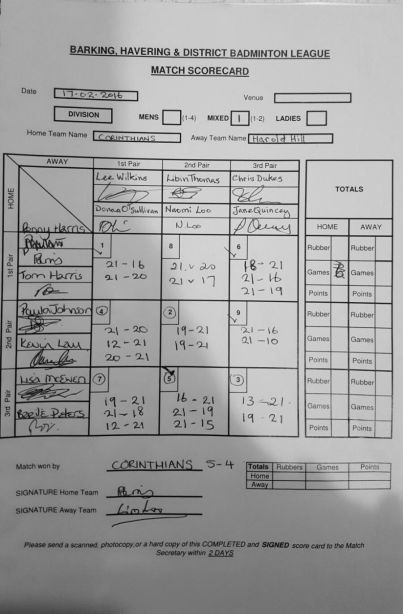 BARKING, HAVERING & DISTRICT BADMINTON LEAGUE
MATCH SCORECARD
Date 17-02-2016 Venue
DIVISION MENS (1-4) MIXED 1 (1-2) LADIES
Home Team Name CORINTHIANS Away Team Name Harold Hill
AWAY 1st Pair 2nd Pair 3rd Pair
HOME
Lee Wilkins Libin Thomas Chris Dukes
TOTALS
Donna O'Sullivan Naomi Loo Jane Quincey
Penny Harris N Loo HOME AWAY
1st Pair
1 8 6 Rubber Rubber
Tom Harris
21-16 21 v 20 18-21 Games Games
21-20 21 v 17 21-16
21-19 Points Points
2nd Pair
Paula Johnson 4 2 9 Rubber Rubber
Kevin Lau
21-20 19-21 21-16 Games Games
12-21 19-21 21-10
20-21 Points Points
3rd Pair
Lisa McEwen 7 5 3 Rubber Rubber
19-21 16-21 13-21 Games Games
Peters 21-18 21-19 19-21
12-21 21-15 Points Points
Match won by CORINTHIANS 5-4
Totals Rubbers Games Points
Home
Away
SIGNATURE Home Team
SIGNATURE Away Team
Please send a scanned, photocopy,or a hard copy of this COMPLETED and SIGNED score card to the Match
Secretary within 2 DAYS